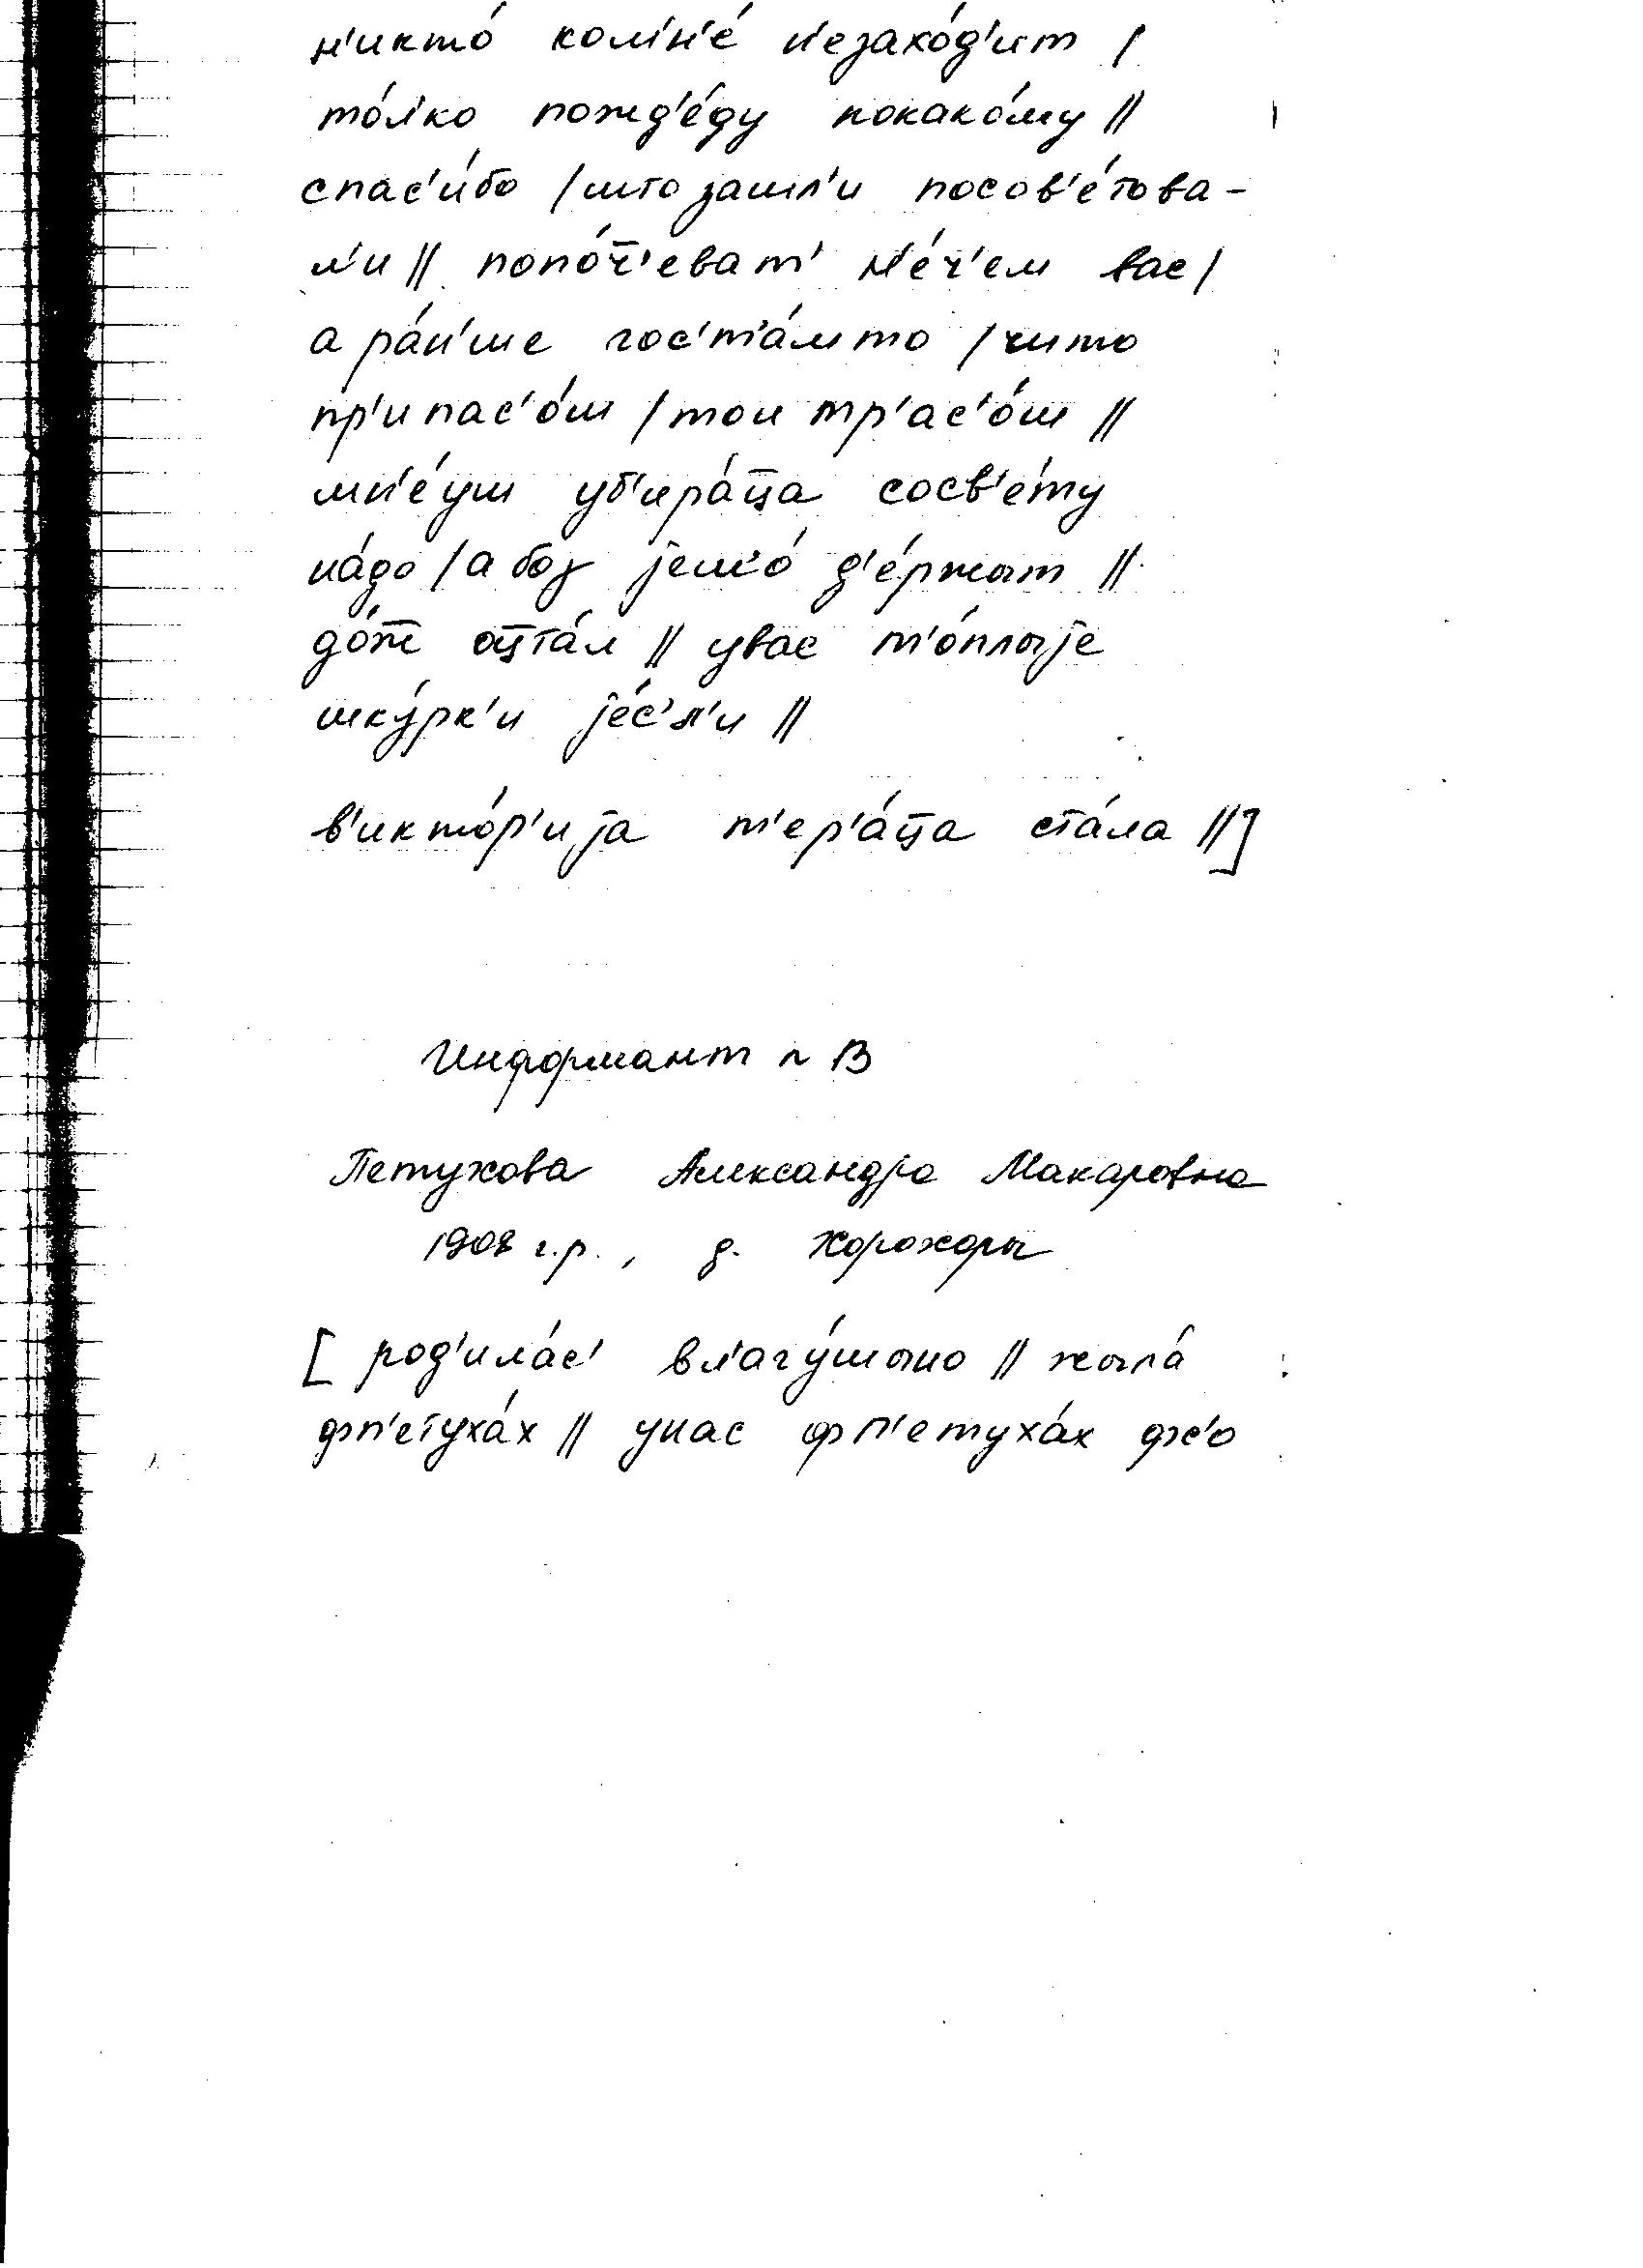 н'икто́ ком'н'е́ н'езахо́д'ит /
то́л'ко пожд'е́ду покако́му //
спас'и́бо / што зашл'и посов'е́това-
л'и // попо́т͞ч'еват' н'е́ч'ем вас /
а ра́н'ше гос'т'а́мто / што
пр'ипас'о́ш / тои тр'ас'о́ш //
мн'е́уш уб'ира́ц̅а сосв'е́ту
на́до / а бох јеш'о́ д'е́ржыт //
до́ж̅ оц̅та́л // увас т'о́плыје
шку́рк'и је́с'л'и //
в'икто́р'ија т'ер'а́ц̅а ста́ла //]
Информант ~ В
Петухова Александра Макаровна
1908 г.р., д. Хорохоры
[ род'ила́с' вл'агу́шыно // жыла́
фп'етуха́х // унас фп'етуха́х фс'о